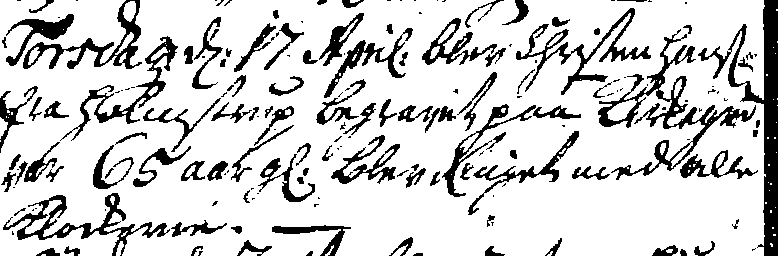 Torsdag d: 17 April. blev Christen Hanss:
fra Holmstrup begravet paa Kirkegrd:
var 65 aar gl: blev Ringet med alle
Klockerne. —